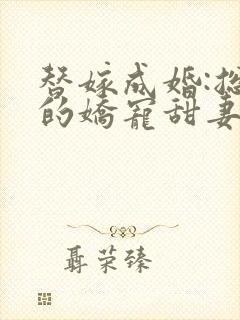 替嫁成婚:总
的娇宠甜妻
聂荣臻